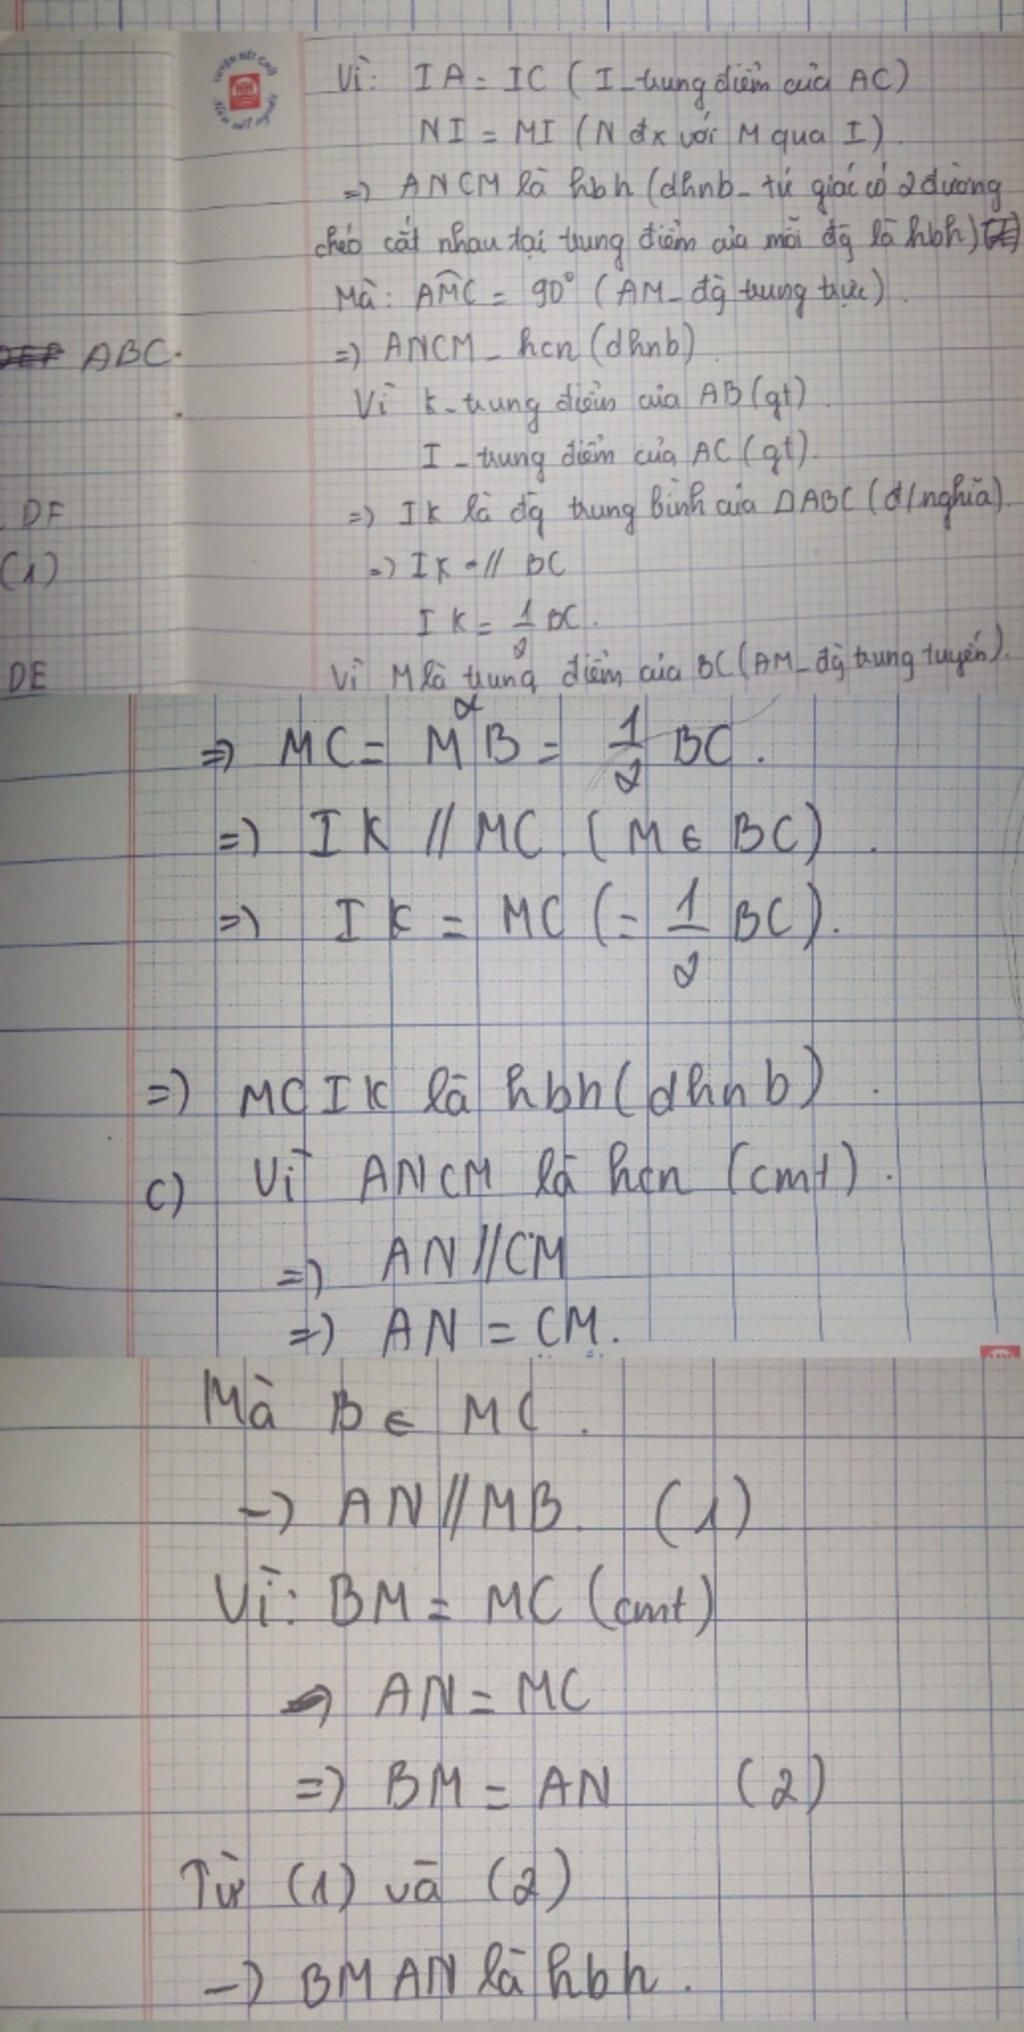 Vì: IA = IC (I_trung điểm của AC)
NI = MI (N đx với M qua I).
=) ANCM là hbh (dhnb_ tứ giác có 2 đường
chéo cắt nhau tại trung điểm của mỗi đg là hbh)
Mà: AMC = 90° (AM_ đg trung trực).
ABC.
=) ANCM_ hcn (dhnb).
Vì K_trung điểm của AB (gt).
I_trung điểm của AC (gt).
DF
=) IK là đg trung bình của ΔABC (đ/nghĩa).
(1)
=) IK // BC
IK = 1/2 BC.
DE
Vì M là trung điểm của BC (AM_đg trung tuyến).
=) MC = MB = 1/2 BC.
=) IK // MC. (M ∈ BC).
=) IK = MC (= 1/2 BC).
=) MCIK là hbh (dhnb).
c) Vì ANCM là hcn (cmt).
=) AN // CM
=) AN = CM.
Mà B ∈ MC.
-) AN // MB. (1)
Vì: BM = MC (cmt)
=) AN = MC
=) BM = AN (2)
Từ (1) và (2)
-) BMAN là hbh.